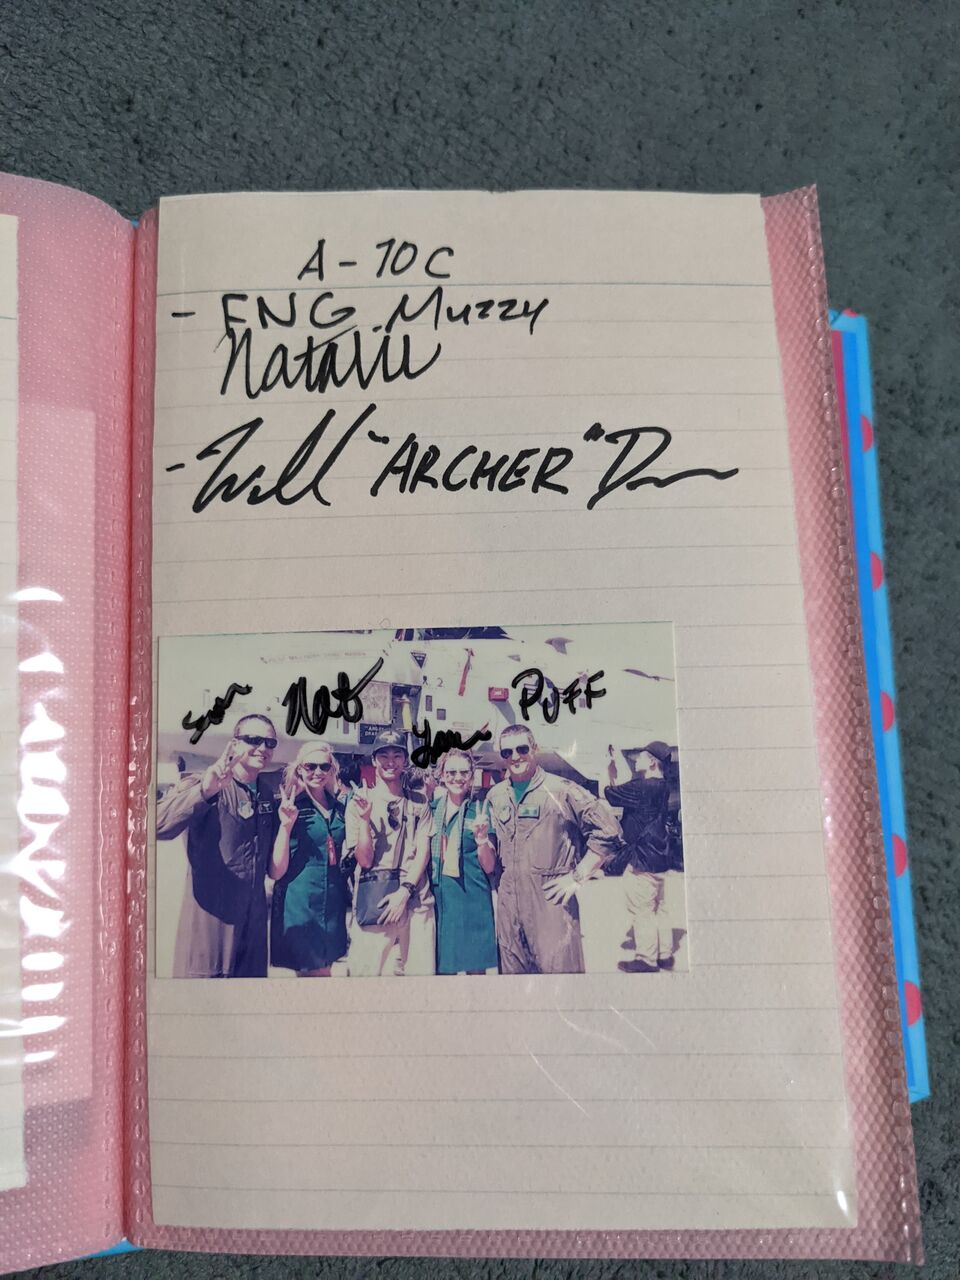 A-10C
- FNG Muzzy
Natalie
- Will "ARCHER" D
Nat
PUFF